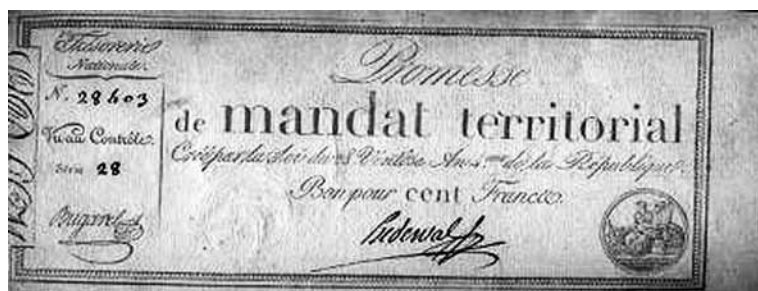 Trésorerie
Nationale.
N. 28403
Vu au Contrôle.
Série 28
Bugarel
Promesse
de mandat territorial
Créé par la Loi du 28 Ventôse An 4.me de la République.
Bon pour cent Francs.